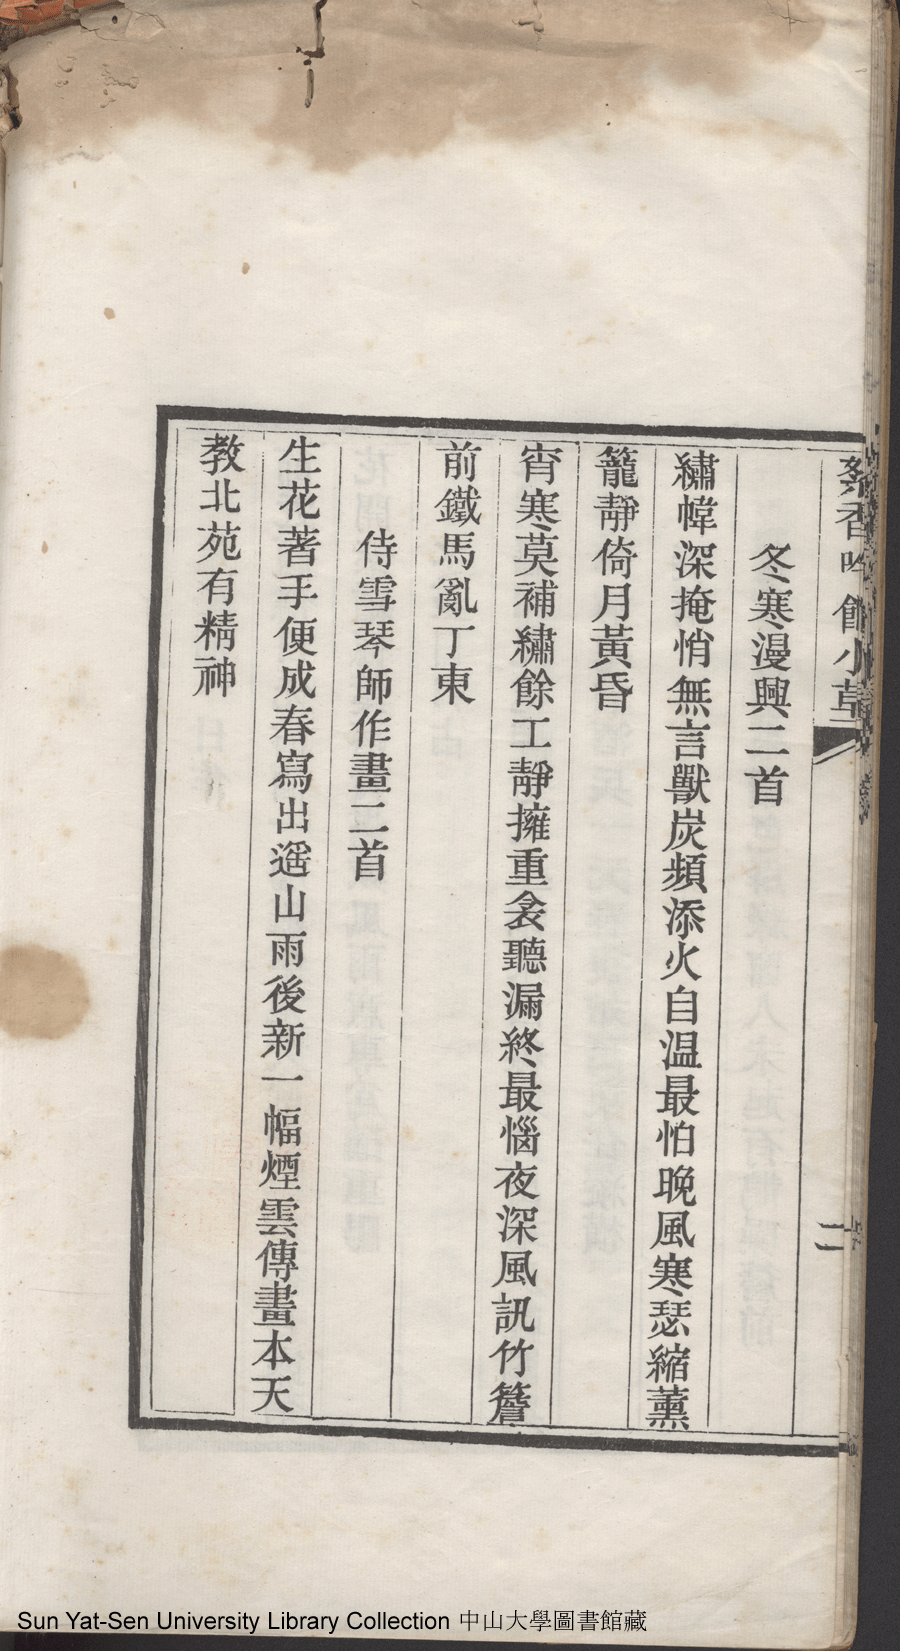 冬寒漫興二首
繡幃深掩悄無言獸炭頻添火自温最怕晚風寒瑟縮薰
籠靜倚月黃昏
宵寒莫補繡餘工靜擁重衾聽漏終最惱夜深風訊竹簷
前鐵馬亂丁東
侍雪琴師作畫二首
生花著手便成春寫出遥山雨後新一幅煙雲傳畫本天
教北苑有精神
香吟館小草
二
Sun Yat-Sen University Library Collection 中山大學圖書館藏